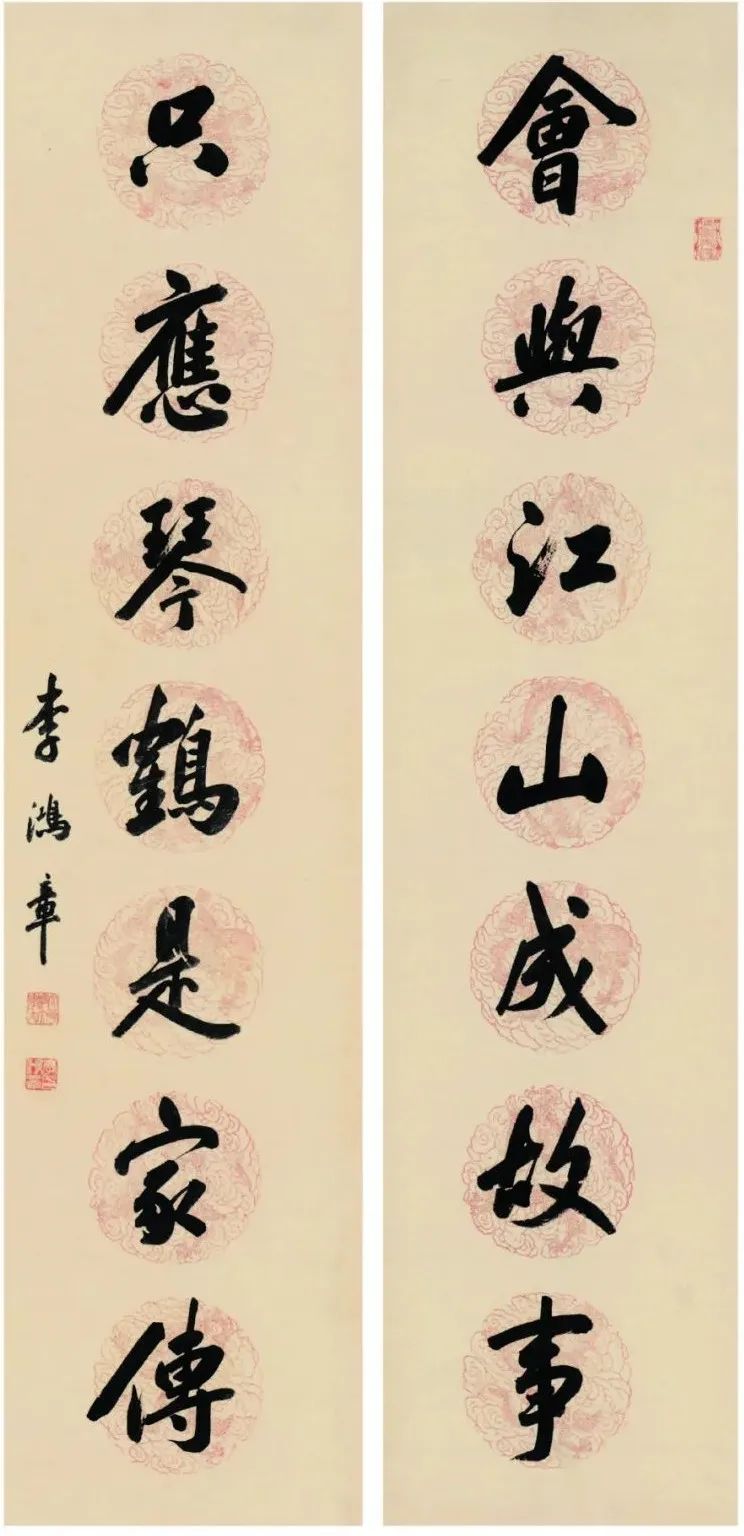 會與江山成故事
只應琴鶴是家傳
李鴻章